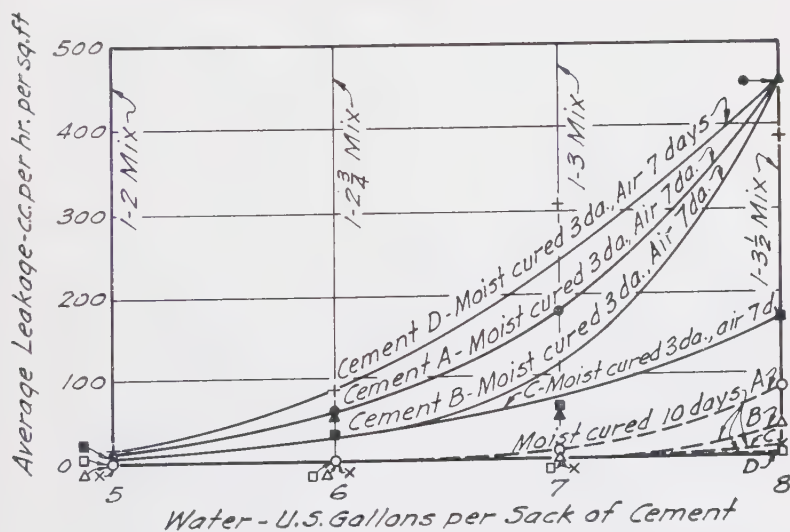 500
400
300
200
100
0
Average Leakage-cc. per hr. per sq. ft
1-2 Mix
1-2 3/4 Mix
1-3 Mix
1-3 1/2 Mix
Cement D-Moist cured 3 da., Air 7 days
Cement A-Moist cured 3 da., Air 7 da.
Cement B-Moist cured 3 da., Air 7 da.
C-Moist cured 3 da., air 7 d
Moist cured 10 days
A
B
C
D
5
6
7
8
Water-U.S. Gallons per Sack of Cement